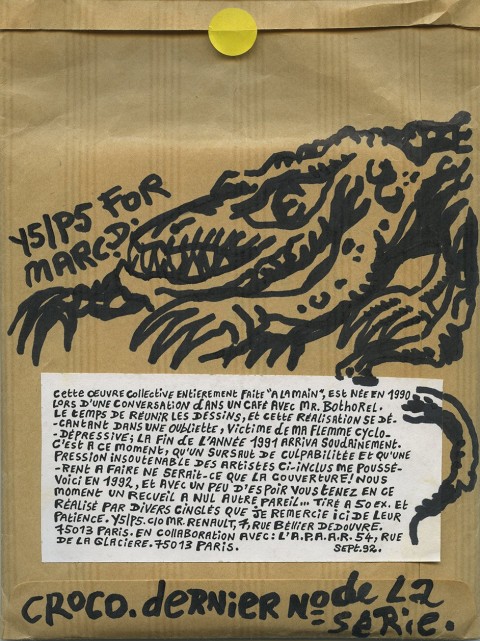 Y5/P5 FOR
MARC.D.
Cette OEUVRE COLLECTIVE ENTIEREMENT FAITE "A LA MAIN", EST NÉE EN 1990
LORS D'UNE CONVERSATION DANS UN CAFÉ AVEC MR. BOTHOREL.
LE TEMPS DE RÉUNIR LES DESSINS, ET CETTE RÉALISATION SE DÉ-
-CANTANT DANS UNE OUBLIETTE, VICTIME DE MA FLEMME CYCLO-
-DÉPRESSIVE; LA FIN DE L'ANNÉE 1991 ARRIVA SOUDAINEMENT.
C'EST A CE MOMENT, QU'UN SURSAUT DE CULPABILITÉE ET QU'UNE
PRESSION INSOUTENABLE DES ARTISTES CI-INCLUS ME POUSSÉ-
-RENT A FAIRE NE SERAIT-CE QUE LA COUVERTURE! NOUS
VOICI EN 1992, ET AVEC UN PEU D'ESPOIR VOUS TENEZ EN CE
MOMENT UN RECUEIL A NUL AUTRE PAREIL... TIRÉ A 50 EX. ET
RÉALISÉ PAR DIVERS CINGLÉS QUE JE REMERCIE ICI DE LEUR
PATIENCE. Y5/P5. C/O MR. RENAULT, 7, RUE BELLIER DEDOUVRE.
75013 PARIS. EN COLLABORATION AVEC: L'A.P.A.A.R. 54, RUE
DE LA GLACIERE. 75013 PARIS. SEPT.92.
CROCO. dERNIER No de LA
SERIE.